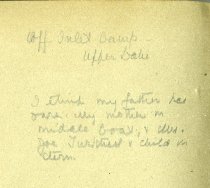 Off Inlet Camp
Upper Lake
I think my father has
oars. My mother in
middle boat, & Mrs.
Joe Twichell & child in
stern